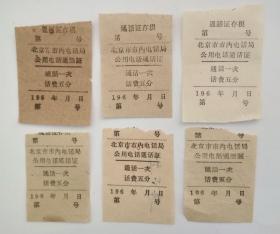 通话证存根
第 号
北京市市内电话局
公用电话通话证
通话一次
话费五分
196 年 月 日
第 号
通话证存根
第 号
北京市市内电话局
公用电话通话证
通话一次
话费五分
196 年 月 日
第 号
通话证存根
第 号
北京市市内电话局
公用电话通话证
通话一次
话费五分
196 年 月 日
第 号
第 号
北京市市内电话局
公用电话通话证
通话一次
话费五分
196 年 月 日
第 号
第 号
北京市市内电话局
公用电话通话证
通话一次
话费五分
196 年 月 日
第 号
第 号
北京市市内电话局
公用电话通话证
通话一次
话费五分
196 年 月 日
第 号